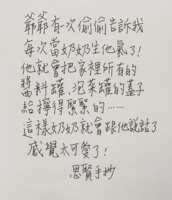 爺爺有一次偷偷告訴我
每次當奶奶生他氣了!
他就會把家裡所有的
醬料罐,泡菜罐的蓋子
給擰得緊緊的……
這樣奶奶就會跟他說話了
感覺太可愛了!
思賢手抄